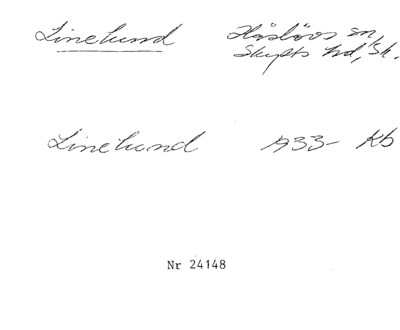 Linelund Håslövs sn,
Skytts hd, Sk.
Linelund 1933- Kb
Nr 24148